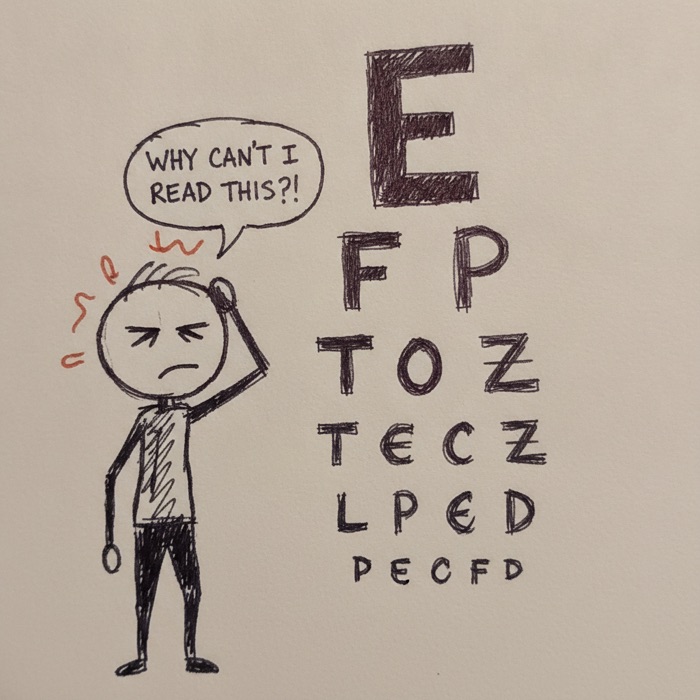 WHY CAN'T I
READ THIS?!
E
F P
T O Z
T E C Z
L P E D
P E C F D